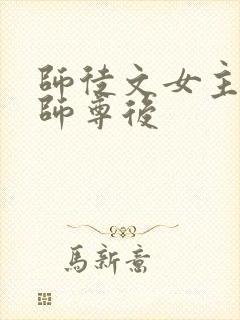 師徒文女主
師尊後
馬新意